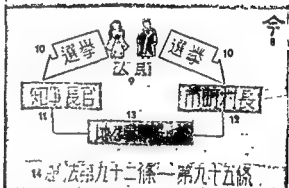 今
8
10
選挙
選挙
10
公民
9
知事長官
市町村長
11
12
13
地方
14 憲法第九十二條一第九十五條